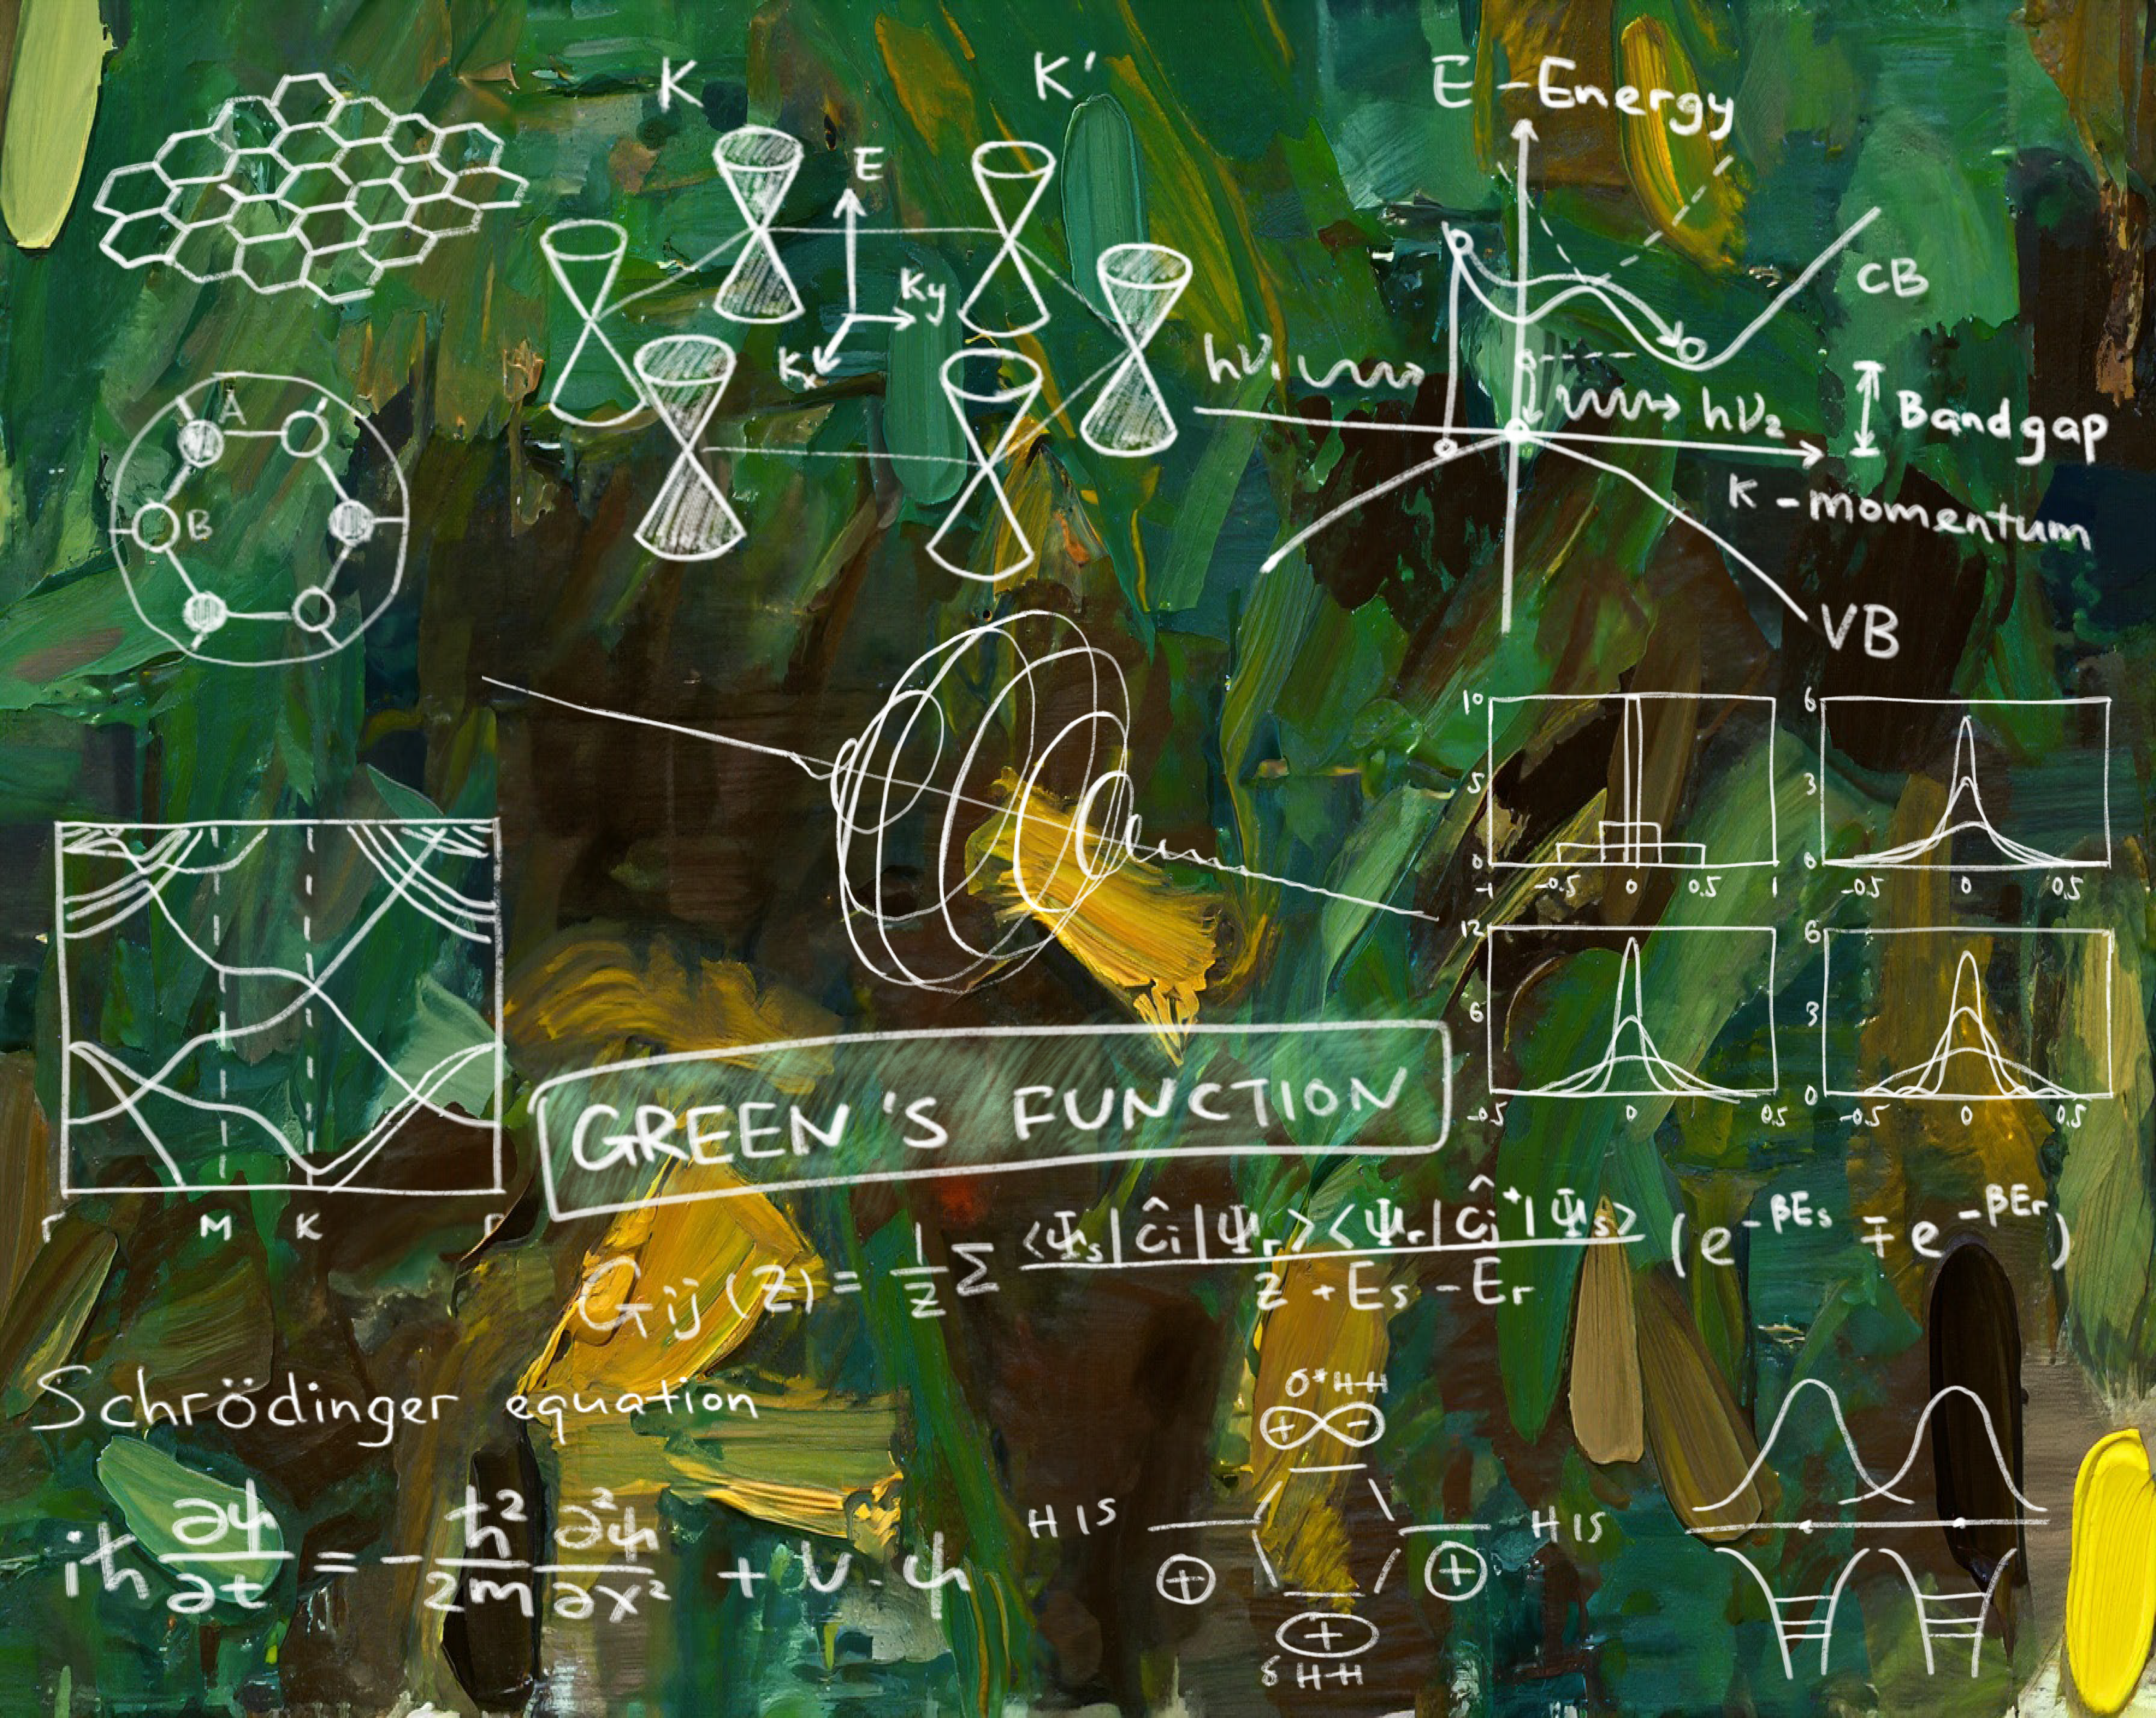 K
K'
E
Ky
Kx
A
B
E - Energy
CB
hν₁
hν₂
Bandgap
K - momentum
VB
10
5
0
-1 -0.5 0 0.5 1
6
3
0
-0.5 0 0.5
12
6
-0.5 0 0.5
6
3
0
-0.5 0 0.5
Γ M K Γ
GREEN'S FUNCTION
Gij (z) = 1/z Σ <Ψs|ĉi|Ψr><Ψr|ĉj⁺|Ψs> / z + Es - Er (e^-βEs ∓ e^-βEr)
Schrödinger equation
iħ ∂ψ/∂t = - ħ²/2m ∂²ψ/∂x² + U . ψ
σ* H-H
+ -
H 1S
H 1S
+
+
+
δ H-H